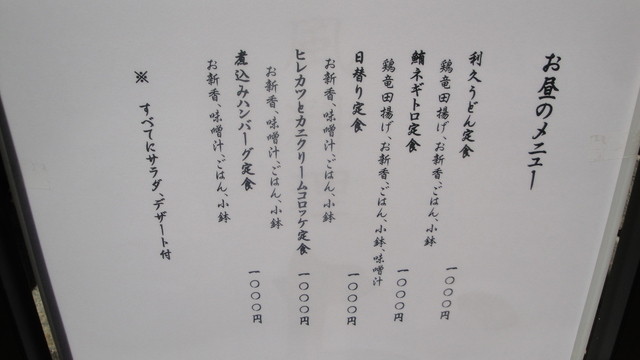 お昼のメニュー
利久うどん定食
鶏竜田揚げ、お新香、ごはん、小鉢
一〇〇〇円
鮪ネギトロ定食
鶏竜田揚げ、お新香、ごはん、小鉢、味噌汁
一〇〇〇円
日替り定食
お新香、味噌汁、ごはん、小鉢
一〇〇〇円
ヒレカツとカニクリームコロッケ定食
お新香、味噌汁、ごはん、小鉢
一〇〇〇円
煮込みハンバーグ定食
お新香、味噌汁、ごはん、小鉢
一〇〇〇円
※ すべてにサラダ、デザート付